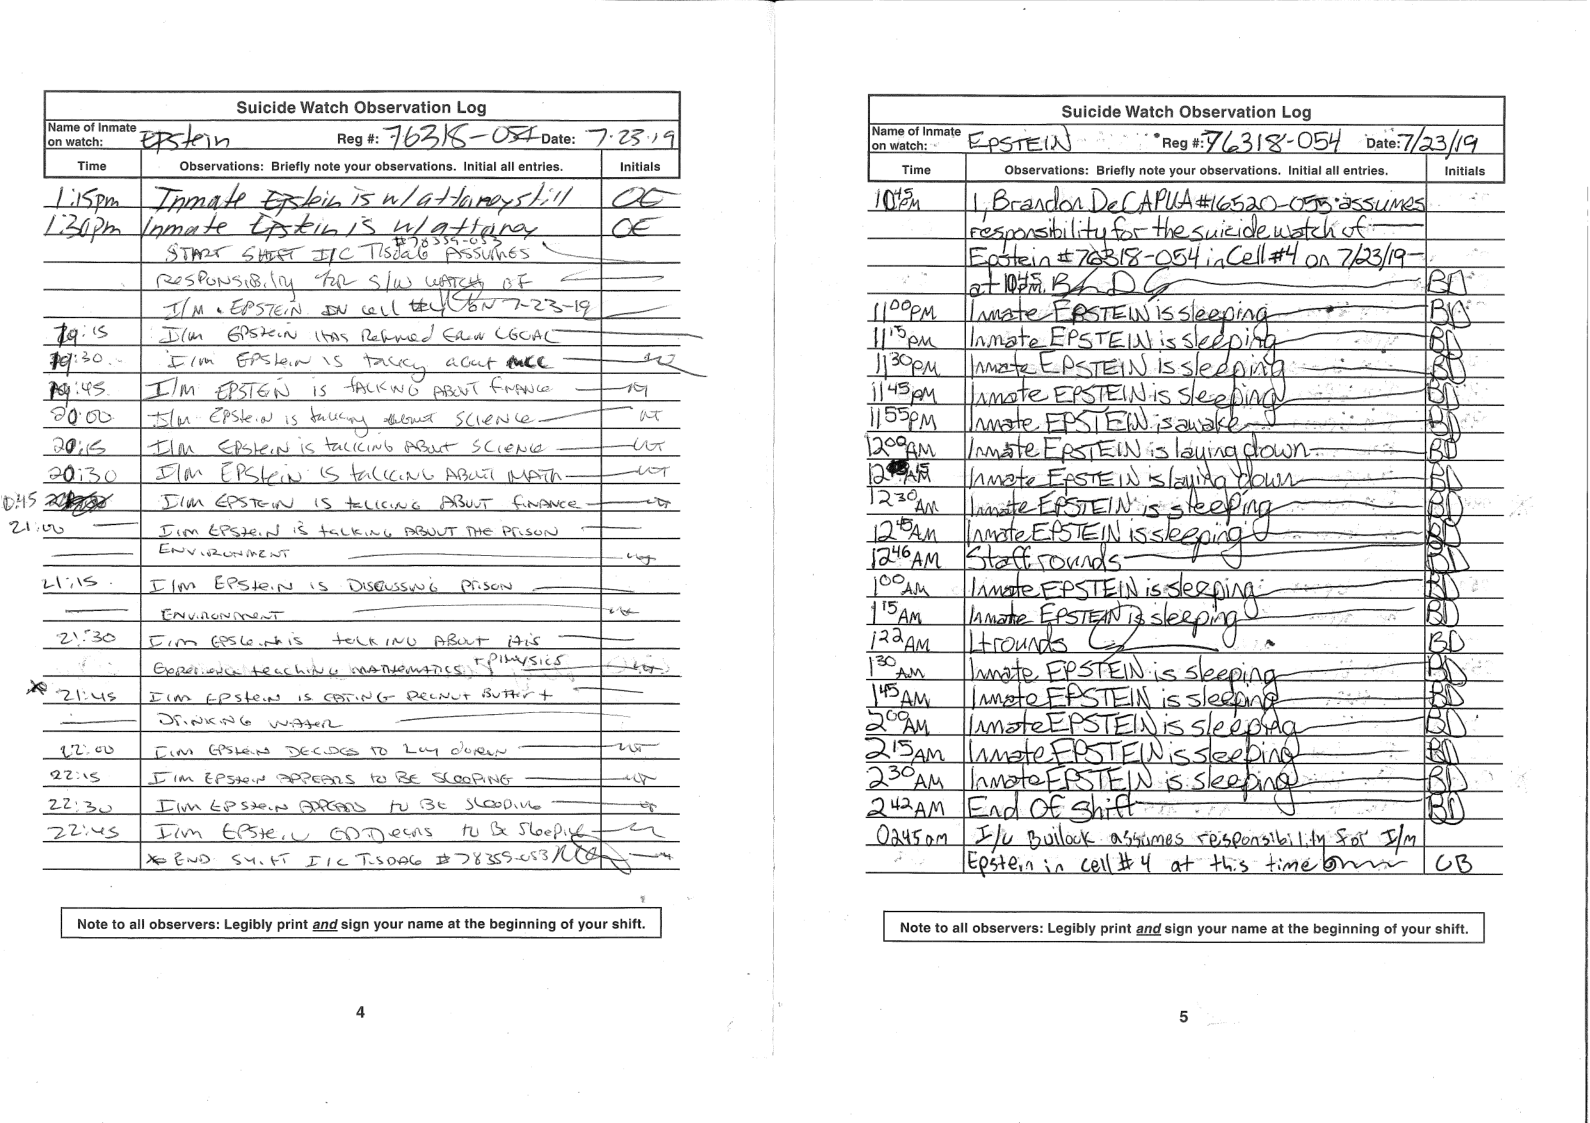 Suicide Watch Observation Log
Name of Inmate on watch: Epstein Reg #: 76318-054 Date: 7-23-19
Time Observations: Briefly note your observations. Initial all entries. Initials
1:15pm Inmate Epstein is w/ attorney still OE
1:30pm Inmate Epstein is w/ attorney OE
#78359-053
START SHIFT I/C Tisdag ASSUMES
RESPONSIBILITY for S/W WATCH OF
I/M EPSTEIN IN cell #4 ON 7-23-19
19:15 I/M EPSTEIN HAS Returned From LEGAL
19:30 I/M EPSTEIN IS talking about MCC
19:45 I/M EPSTEIN IS TALKING ABOUT finance
20:00 I/M EPSTEIN is talking about SCIENCE
20:15 I/M EPSTEIN IS talking ABOUT SCIENCE
20:30 I/M EPSTEIN IS talking ABOUT MATH
I/M EPSTEIN IS talking ABOUT finance
21:00 I/M EPSTEIN IS talking ABOUT THE PRISON
ENVIRONMENT
21:15 I/M EPSTEIN IS DISCUSSING PRISON
ENVIRONMENT
21:30 I/M EPSTEIN is talking ABOUT His
Experience teaching MATHEMATICS + PHYSICS
21:45 I/M EPSTEIN IS EATING PEANUT BUTTER +
DRINKING WATER
22:00 I/M EPSTEIN DECIDES TO Lay down
22:15 I/M EPSTEIN APPEARS to BE SLEEPING
22:30 I/M EPSTEIN APPEARS to BE Sleeping
22:45 I/M EPSTEIN appears to Be Sleeping
END SHIFT I/C TISDAG #78359-053
Note to all observers: Legibly print and sign your name at the beginning of your shift.
4
Suicide Watch Observation Log
Name of Inmate on watch: EPSTEIN Reg #: 76318-054 Date: 7/23/19
Time Observations: Briefly note your observations. Initial all entries. Initials
10:45 PM I, Brandon DeCAPUA #16520-055 assumes
responsibility for the suicide watch of
Epstein #76318-054 in Cell #4 on 7/23/19
at 10:45 pm. BD
11:00 PM Inmate EPSTEIN is sleeping BD
11:15 PM Inmate EPSTEIN is sleeping BD
11:30 PM Inmate EPSTEIN is sleeping BD
11:45 PM Inmate EPSTEIN is sleeping BD
11:55 PM Inmate EPSTEIN is awake BD
12:00 AM Inmate EPSTEIN is laying down BD
12:15 AM Inmate EPSTEIN is laying down BD
12:30 AM Inmate EPSTEIN is sleeping BD
12:45 AM Inmate EPSTEIN is sleeping BD
12:46 AM Staff rounds BD
1:00 AM Inmate EPSTEIN is sleeping BD
1:15 AM Inmate EPSTEIN is sleeping BD
1:22 AM Lt rounds BD
1:30 AM Inmate EPSTEIN is sleeping BD
1:45 AM Inmate EPSTEIN is sleeping BD
2:00 AM Inmate EPSTEIN is sleeping BD
2:15 AM Inmate EPSTEIN is sleeping BD
2:30 AM Inmate EPSTEIN is sleeping BD
2:42 AM End Of Shift BD
0245am I/C Bullock assumes responsibility for I/m
Epstein in cell #4 at this time CB
Note to all observers: Legibly print and sign your name at the beginning of your shift.
5